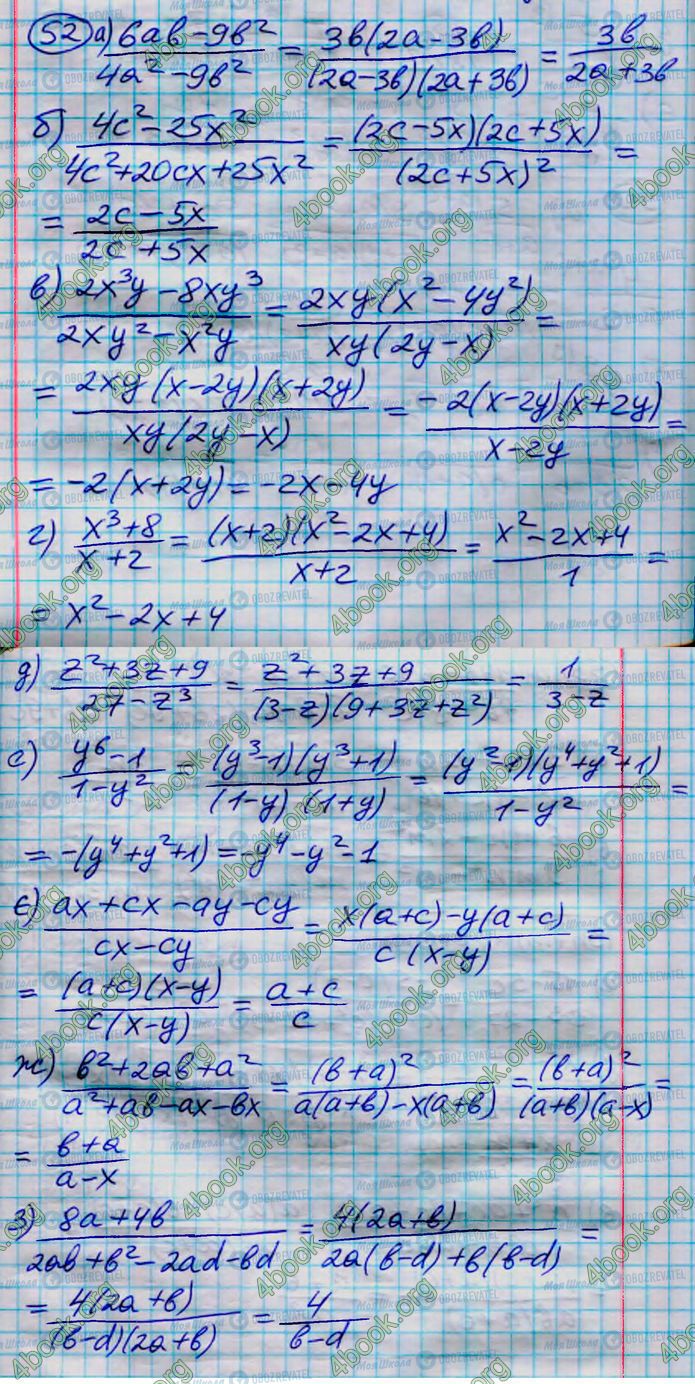 52 а) 6ab-9b²/4a²-9b² = 3b(2a-3b)/(2a-3b)(2a+3b) = 3b/2a+3b
б) 4c²-25x²/4c²+20cx+25x² = (2c-5x)(2c+5x)/(2c+5x)² =
= 2c-5x/2c+5x
в) 2x³y-8xy³/2xy²-x²y = 2xy(x²-4y²)/xy(2y-x) =
= 2xy(x-2y)(x+2y)/xy(2y-x) = -2(x-2y)(x+2y)/x-2y =
= -2(x+2y) = -2x-4y
г) x³+8/x+2 = (x+2)(x²-2x+4)/x+2 = x²-2x+4/1 =
= x²-2x+4
д) z²+3z+9/27-z³ = z²+3z+9/(3-z)(9+3z+z²) = 1/3-z
е) y⁶-1/1-y² = (y³-1)(y³+1)/(1-y)(1+y) = (y²-1)(y⁴+y²+1)/1-y² =
= -(y⁴+y²+1) = -y⁴-y²-1
є) ax+cx-ay-cy/cx-cy = x(a+c)-y(a+c)/c(x-y) =
= (a+c)(x-y)/c(x-y) = a+c/c
ж) b²+2ab+a²/a²+ab-ax-bx = (b+a)²/a(a+b)-x(a+b) = (b+a)²/(a+b)(a-x) =
= b+a/a-x
з) 8a+4b/2ab+b²-2ad-bd = 4(2a+b)/2a(b-d)+b(b-d) =
= 4(2a+b)/(b-d)(2a+b) = 4/b-d